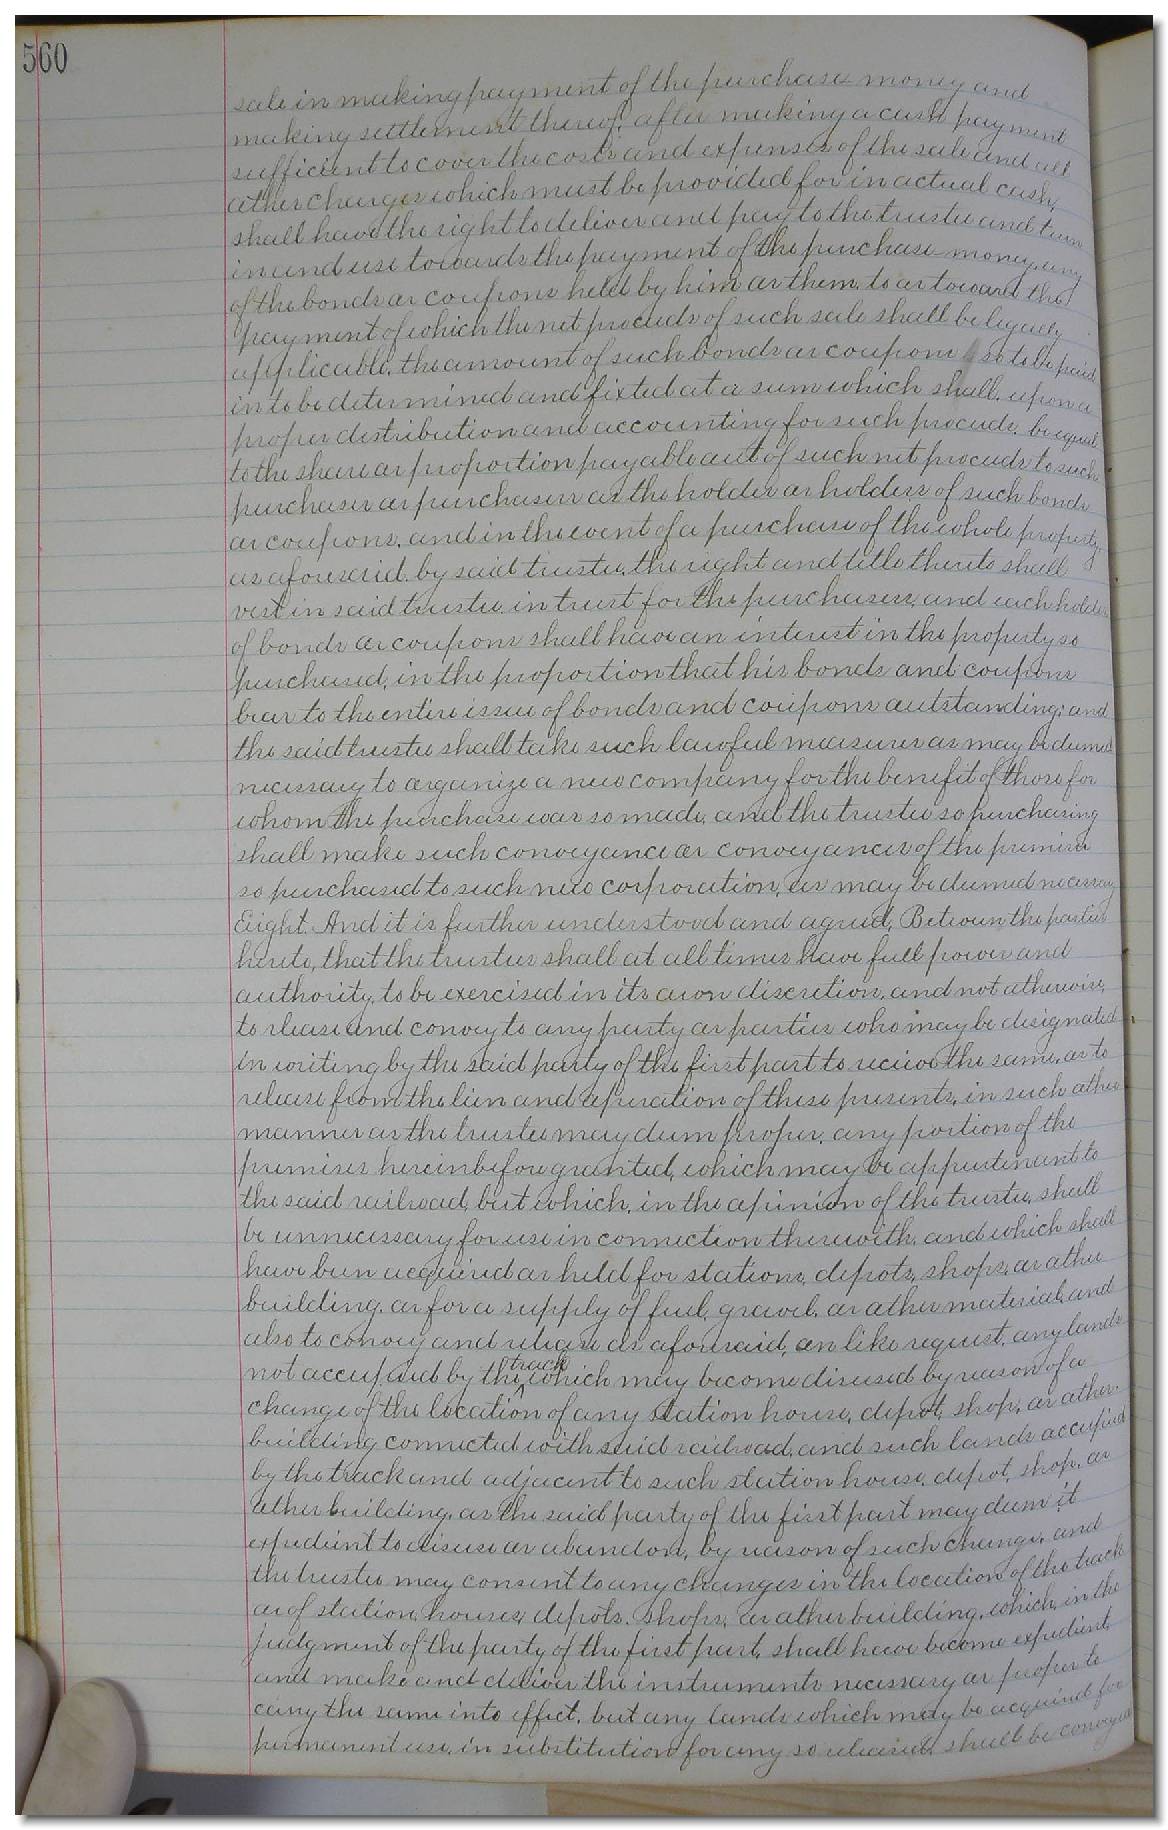 560
sale in making payment of the purchase money and
making settlement thereof, after making a cash payment
sufficient to cover the costs and expenses of the sale and all
other charges which must be provided for in actual cash,
shall have the right to deliver and pay to the trustee and turn
in and use towards the payment of the purchase money, any
of the bonds or coupons held by him or them, to or toward the
payment of which the net proceeds of such sale shall be legally
applicable, the amount of such bonds or coupons so to be paid
in to be determined and fixted at a sum which shall, upon a
proper distribution and accounting for such proceeds, be equal
to the share or proportion payable out of such net proceeds to such
purchaser or purchasers as the holder or holders of such bonds
or coupons, and in the event of a purchase of the whole property
as aforesaid, by said trustee, the right and title thereto shall
vest in said trustee in trust for the purchasers, and each holder
of bonds or coupons shall have an interest in the property so
purchased, in the proportion that his bonds and coupons
bear to the entire issue of bonds and coupons outstanding; and
the said trustee shall take such lawful measures as may be deemed
necessary to organize a new company for the benefit of those for
whom the purchase was so made, and the trustee so purchasing
shall make such conveyance or conveyances of the premises
so purchased to such new corporation, as may be deemed necessary
Eight. And it is further understood and agreed, Between the parties
hereto, that the trustee shall at all times have full power and
authority, to be exercised in its own discretion, and not otherwise,
to release and convey to any party or parties who may be designated
in writing by the said party of the first part to receive the same, or to
release from the lien and operation of these presents, in such other
manner as the trustee may deem proper, any portion of the
premises hereinbefore granted, which may be appurtenant to
the said railroad, but which, in the opinion of the trustee, shall
be unnecessary for use in connection therewith, and which shall
have been acquired or held for stations, depots, shops, or other
building, or for a supply of fuel, gravel, or other material, and
also to convey and release as aforesaid, on like request, any lands
not occupied by the track which may become disused by reason of a
change of the location of any station house, depot, shop, or other
building connected with said railroad, and such lands occupied
by the track and adjacent to such station house, depot, shop, or
other building, as the said party of the first part may deem it
expedient to disuse or abandon, by reason of such change, and
the trustee may consent to any changes in the location of the track
or of station, houses, depots, shops, or other building, which, in the
judgment of the party of the first part, shall have become expedient,
and make and deliver the instruments necessary or proper to
cary the same into effect, but any lands which may be acquired for
permanent use, in substitution for any so released, shall be conveyed